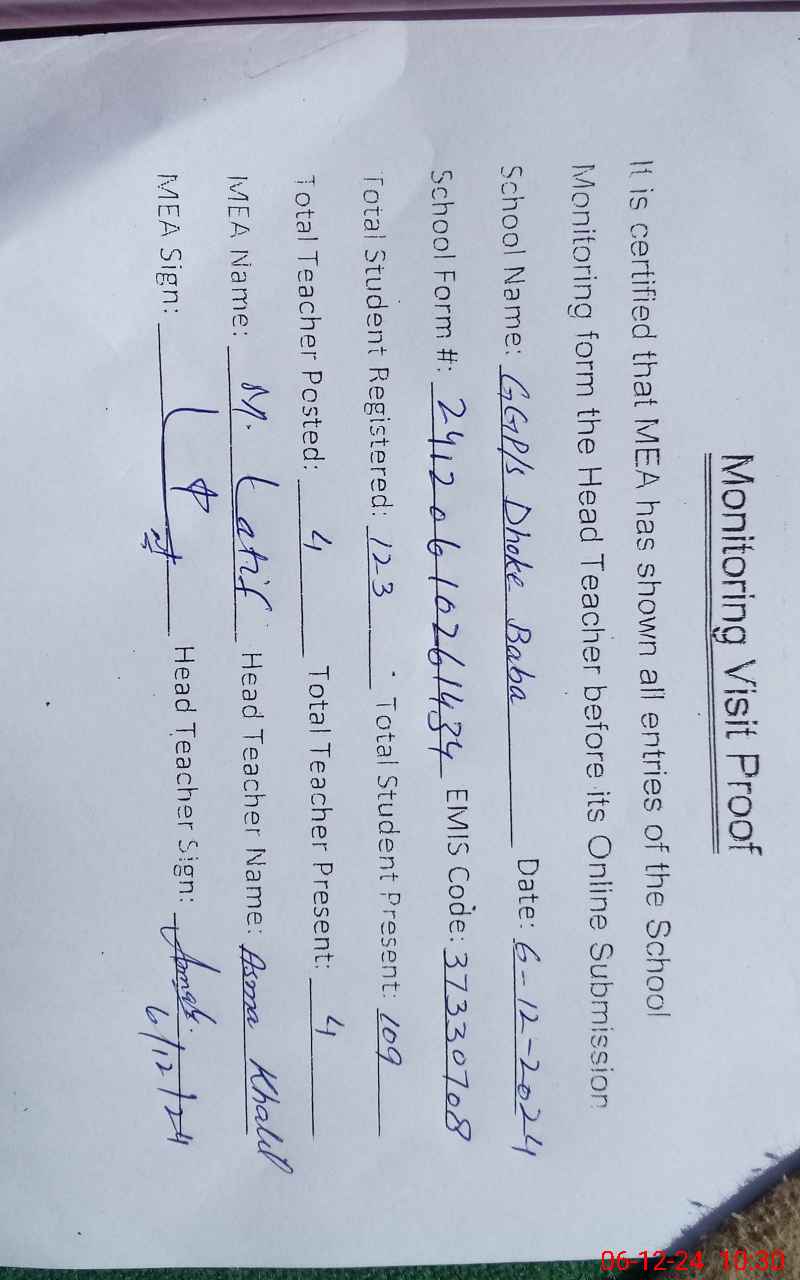 Monitoring Visit Proof
It is certified that MEA has shown all entries of the School
Monitoring form the Head Teacher before its Online Submission
School Name: GGP/s Dhoke Baba Date: 6-12-2024
School Form #: 24120610261434 EMIS Code: 37330708
Total Student Registered: 123 Total Student Present: 109
Total Teacher Posted: 4 Total Teacher Present: 4
MEA Name: M. Latif Head Teacher Name: Asma Khalil
MEA Sign: Head Teacher Sign:
6/12/24
06-12-24 10:30